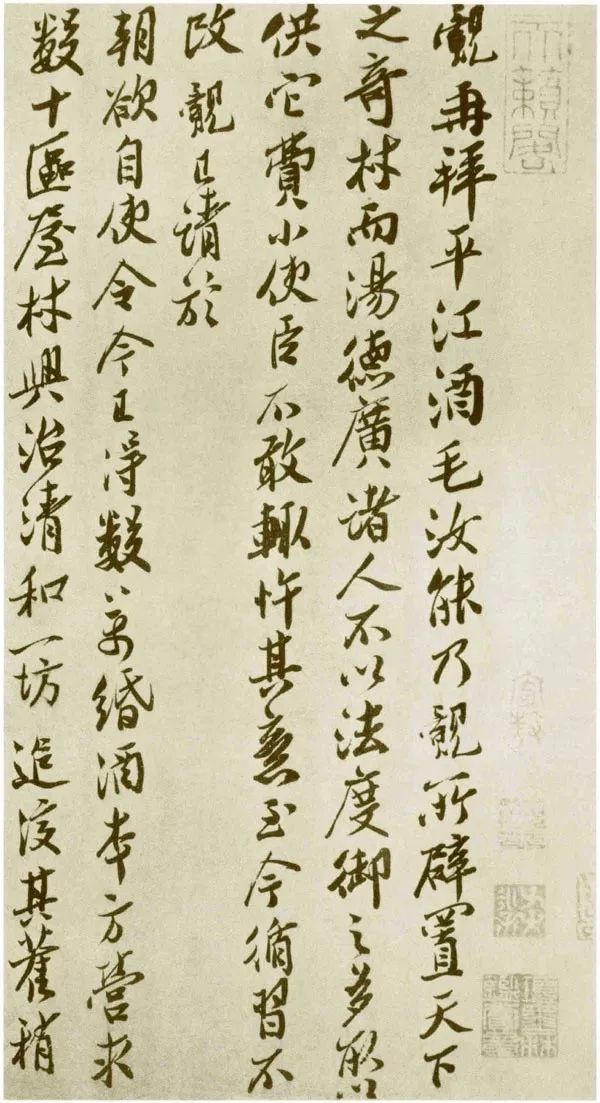 覿再拜平江酒毛汝能乃覿所辟置天下
之奇材而湯德廣諸人不以法度御之多取以
供它費小使臣不敢輒忤其意至今循習不
改覿已請於
朝欲自使令今已得數萬緡酒本方營求
數十區屋材興治清和一坊追復其舊稍
天籟閣